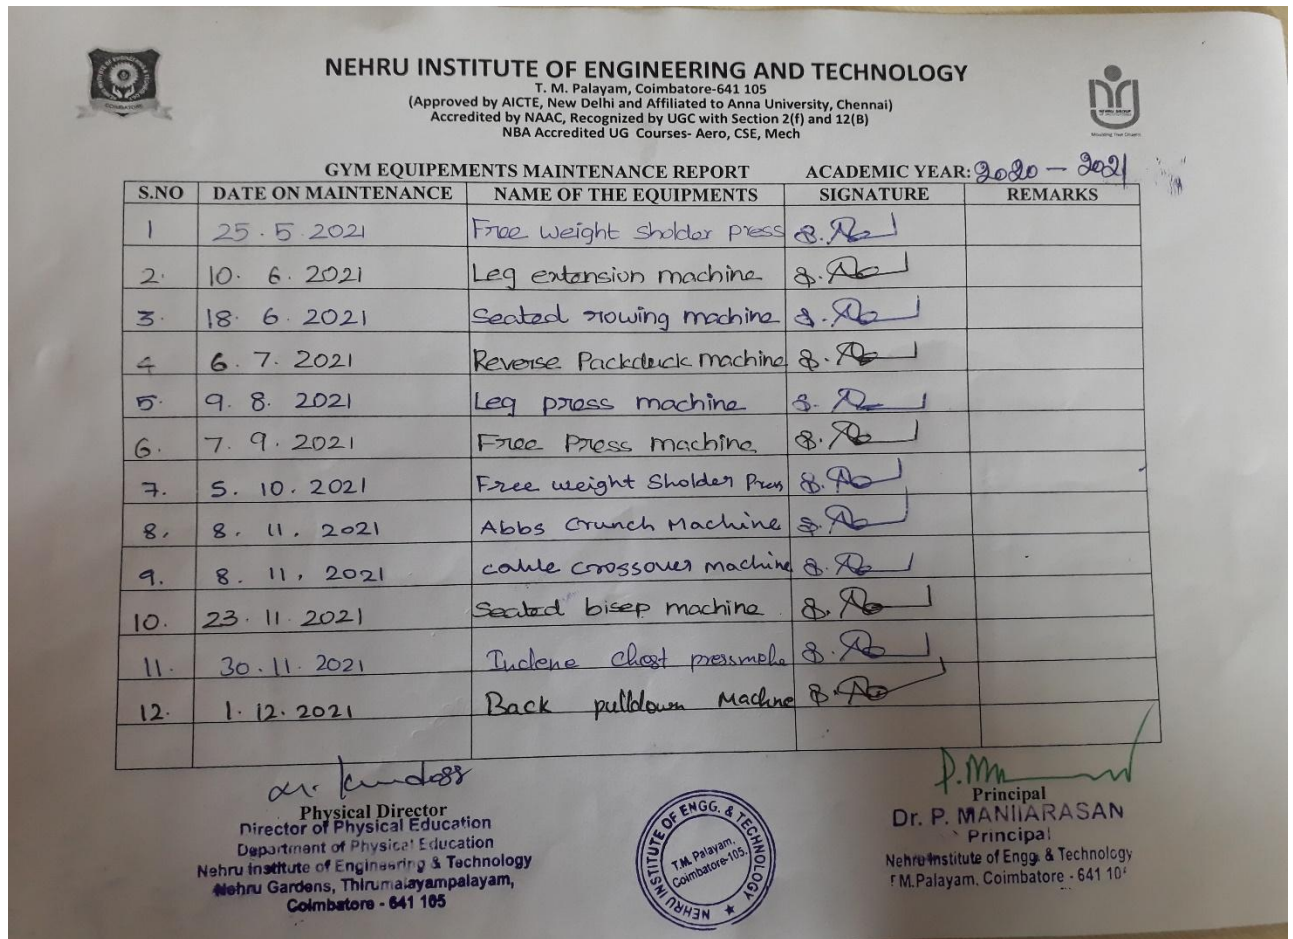 NEHRU INSTITUTE OF ENGINEERING AND TECHNOLOGY
T. M. Palayam, Coimbatore-641 105
(Approved by AICTE, New Delhi and Affiliated to Anna University, Chennai)
Accredited by NAAC, Recognized by UGC with Section 2(f) and 12(B)
NBA Accredited UG Courses- Aero, CSE, Mech
GYM EQUIPEMENTS MAINTENANCE REPORT ACADEMIC YEAR: 2020 - 2021
S.NO DATE ON MAINTENANCE NAME OF THE EQUIPMENTS SIGNATURE REMARKS
1 25.5.2021 Free weight Sholder press
2. 10. 6. 2021 Leg extension machine
3. 18. 6. 2021 Seated rowing machine
4 6. 7. 2021 Reverse Packdeck machine
5. 9. 8. 2021 Leg press machine
6. 7. 9. 2021 Free Press machine
7. 5. 10. 2021 Free weight Sholder Press
8. 8. 11. 2021 Abbs Crunch Machine
9. 8. 11, 2021 cable crossover machine
10. 23. 11. 2021 Seated bisep machine
11. 30.11. 2021 Chest
12. 1. 12. 2021 Back pulldown Machine
Physical Director
Director of Physical Education
Department of Physical Education
Nehru Institute of Engineering & Technology
Nehru Gardens, Thirumalayampalayam,
Coimbatore - 641 105
NEHRU INSTITUTE OF ENGG. & TECHNOLOGY
T.M. Palayam,
Coimbatore-105.
Principal
Dr. P. MANIIARASAN
Principal
Nehru Institute of Engg. & Technology
T M.Palayam, Coimbatore - 641 10